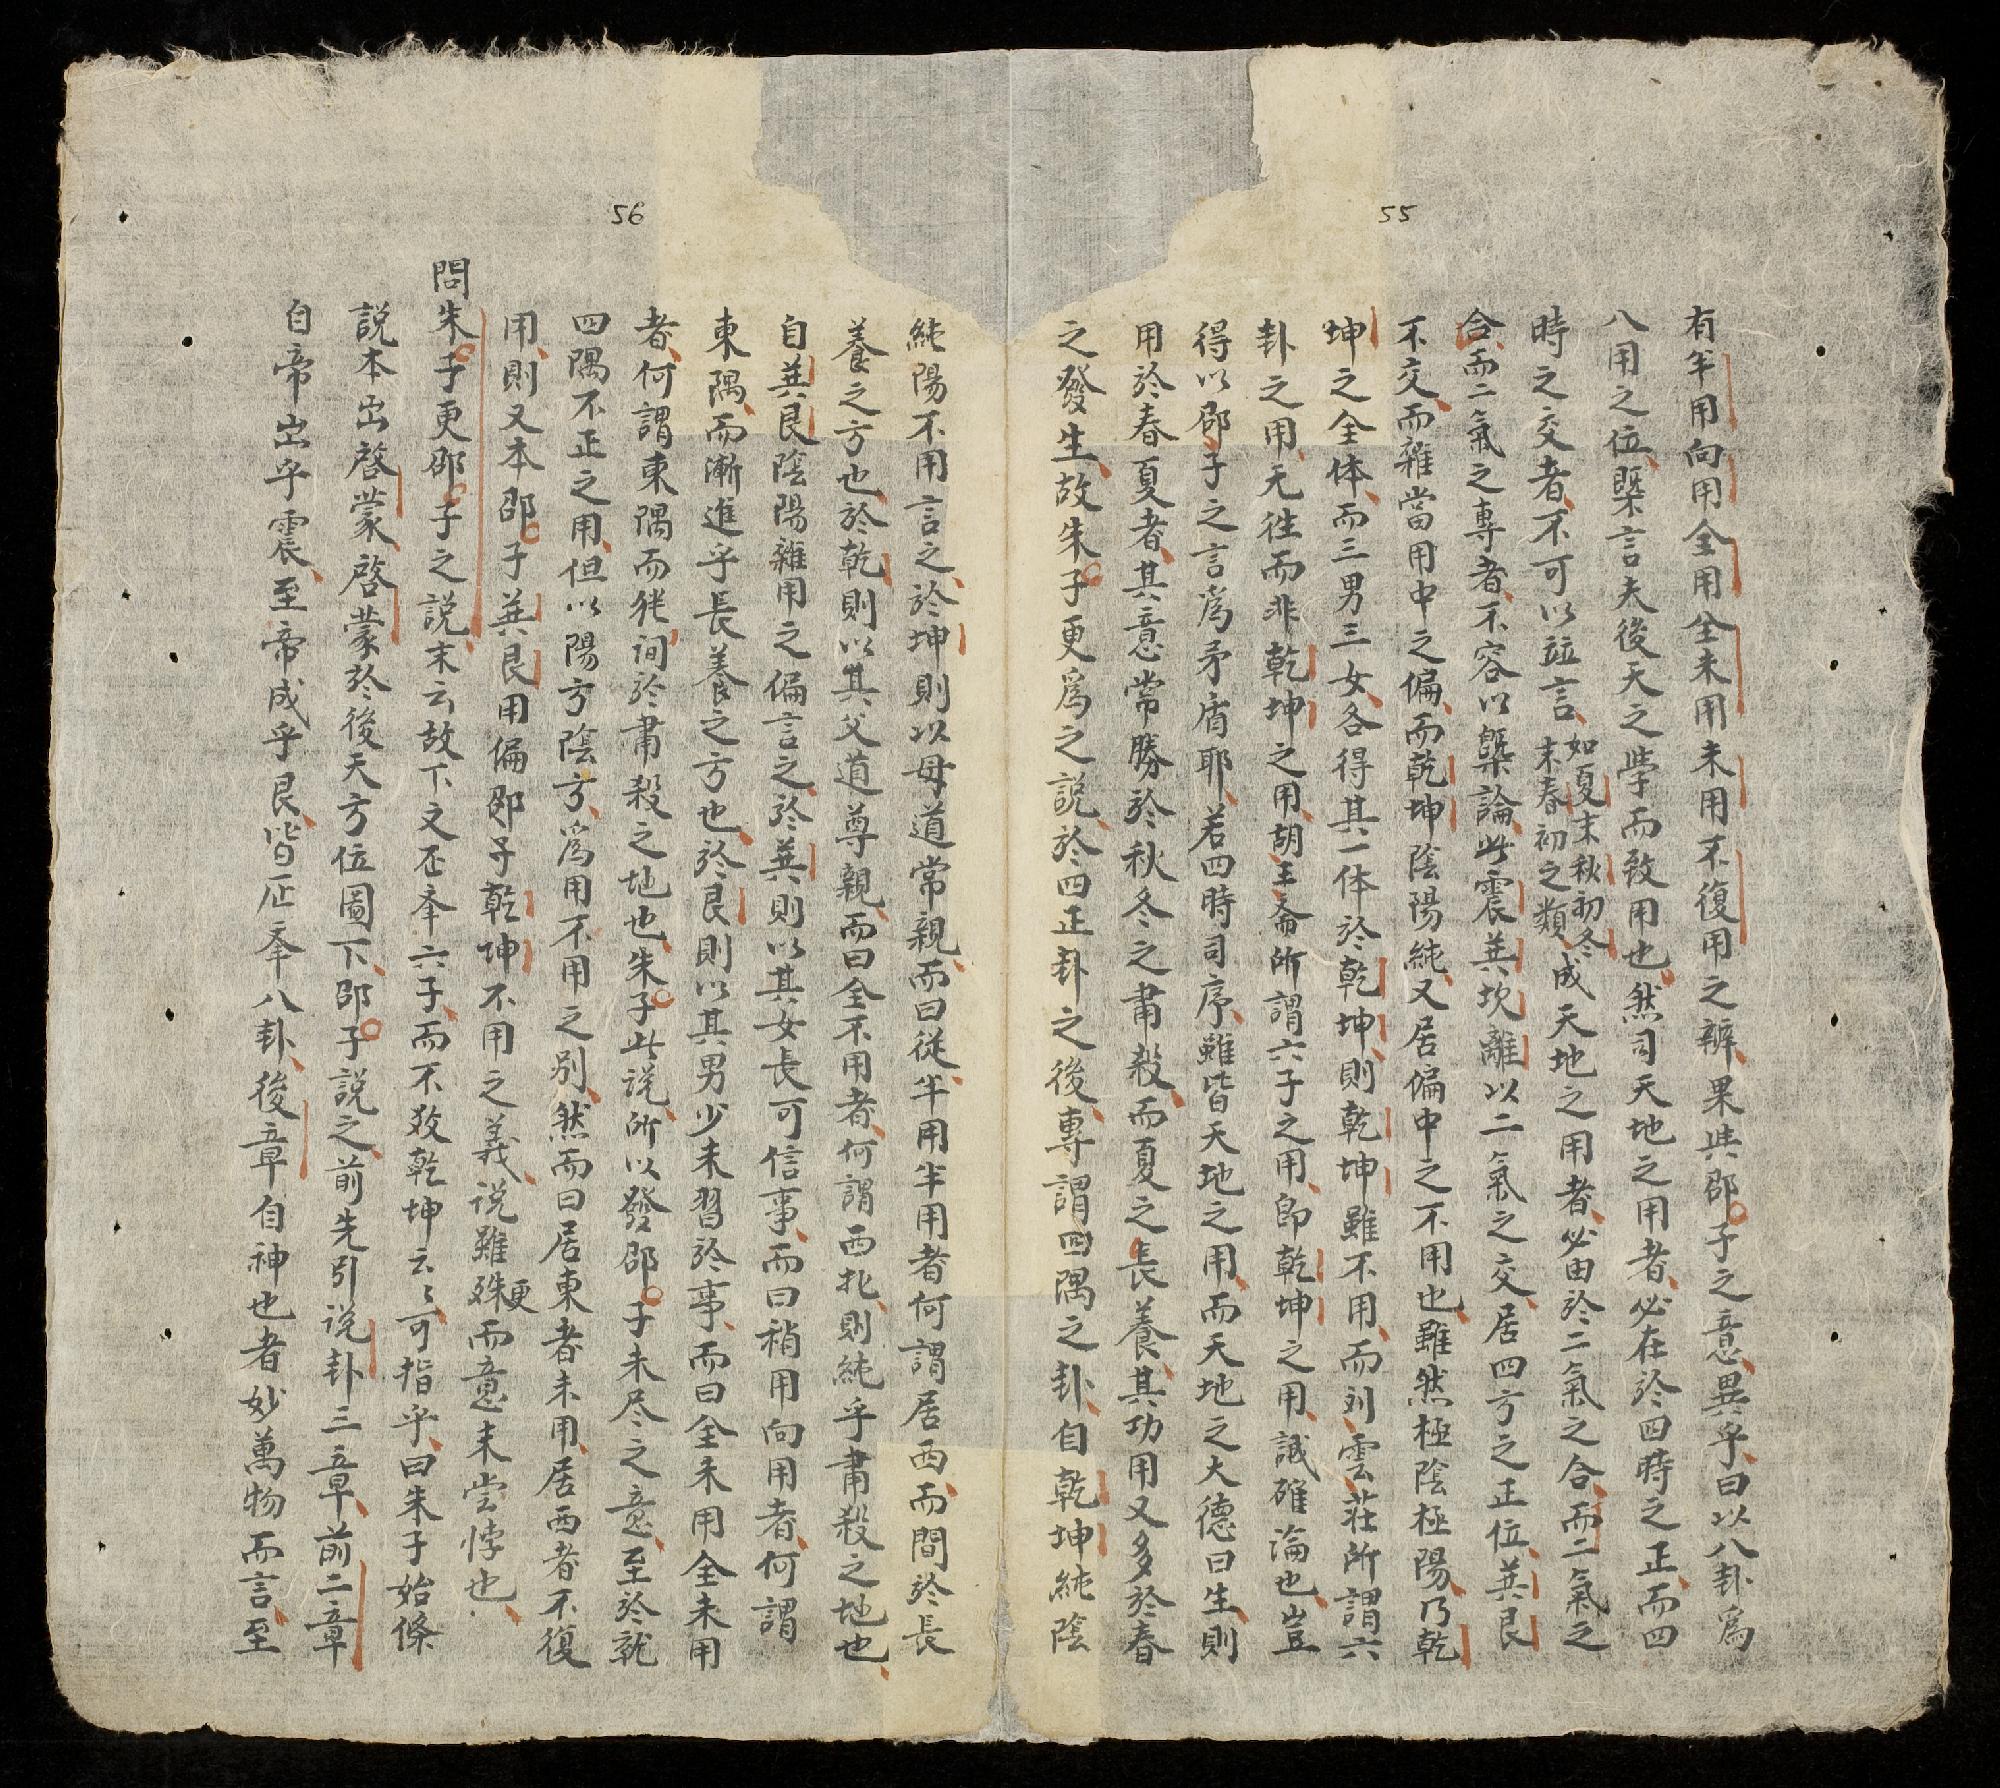 55
有半用向用全用全未用未用不復用之辨果與邵子之意異乎曰以八卦為
八用之位槩言夫後天之學而致用也然司天地之用者必在於四時之正而四
時之交者不可以並言如夏末秋初冬末春初之類成天地之用者必由於二氣之合而二氣之
合而二氣之專者不容以槩論此震巽坎離以二氣之交居四方之正位巽艮
不交而雜當用中之偏而乾坤陰陽純又居偏中之不用也雖然極陰極陽乃乾
坤之全体而三男三女各得其一体於乾坤則乾坤雖不用而刘雲莊所謂六
卦之用无徃而非乾坤之用胡玉斎所謂六子之用即乾坤之用誠確論也豈
得以邵子之言為矛盾耶若四時司序雖皆天地之用而天地之大德曰生則
用於春夏者其意常勝於秋冬之肅殺而夏之長養其功用又多於春
之發生故朱子更爲之說於四正卦之後專謂四隅之卦自乾坤純陰
56
純陽不用言之於坤則以母道常親而曰從半用半用者何謂居西而間於長
養之方也於乾則以其父道尊親而曰全不用者何謂西北則純乎肅殺之地也
自巽艮陰陽雜用之偏言之於巽則以其女長可信事而曰稍用向用者何謂
東隅而漸進乎長養之方也於艮則以其男少未習於事而曰全未用全未用
者何謂東隅而徙間於肅殺之地也朱子此説所以發邵子未尽之意至於就
四隅不正之用但以陽方陰方為用不用之別然而曰居東者未用居西者不復
用則又本邵子巽艮用偏邵子乾坤不用之義説雖殊更而意未尝悖也
問朱子更邵子之説末云故下文歷举六子而不数乾坤云〻可指乎曰朱子始條
説本出啓蒙啓蒙於後天方位圖下邵子説之前先引説卦三章前二章
自帝出乎震至帝成乎艮皆歷举八卦後章自神也者妙萬物而言至